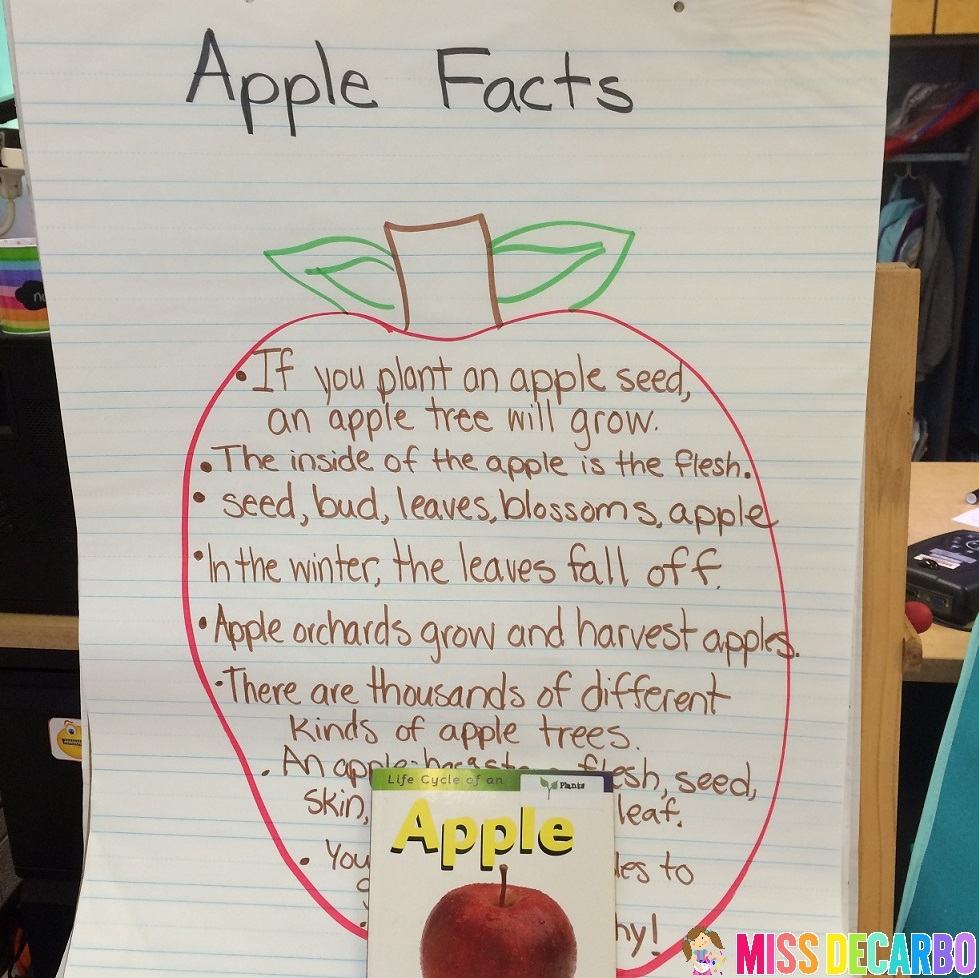 Apple Facts
• If you plant an apple seed,
an apple tree will grow.
• The inside of the apple is the flesh.
• seed, bud, leaves, blossoms, apple
• In the winter, the leaves fall off.
• Apple orchards grow and harvest apples.
• There are thousands of different
kinds of apple trees.
• An apple has a flesh, seed,
skin, leaf.
• You to
Life Cycle of an
Plants
Apple
MISS DECARBO